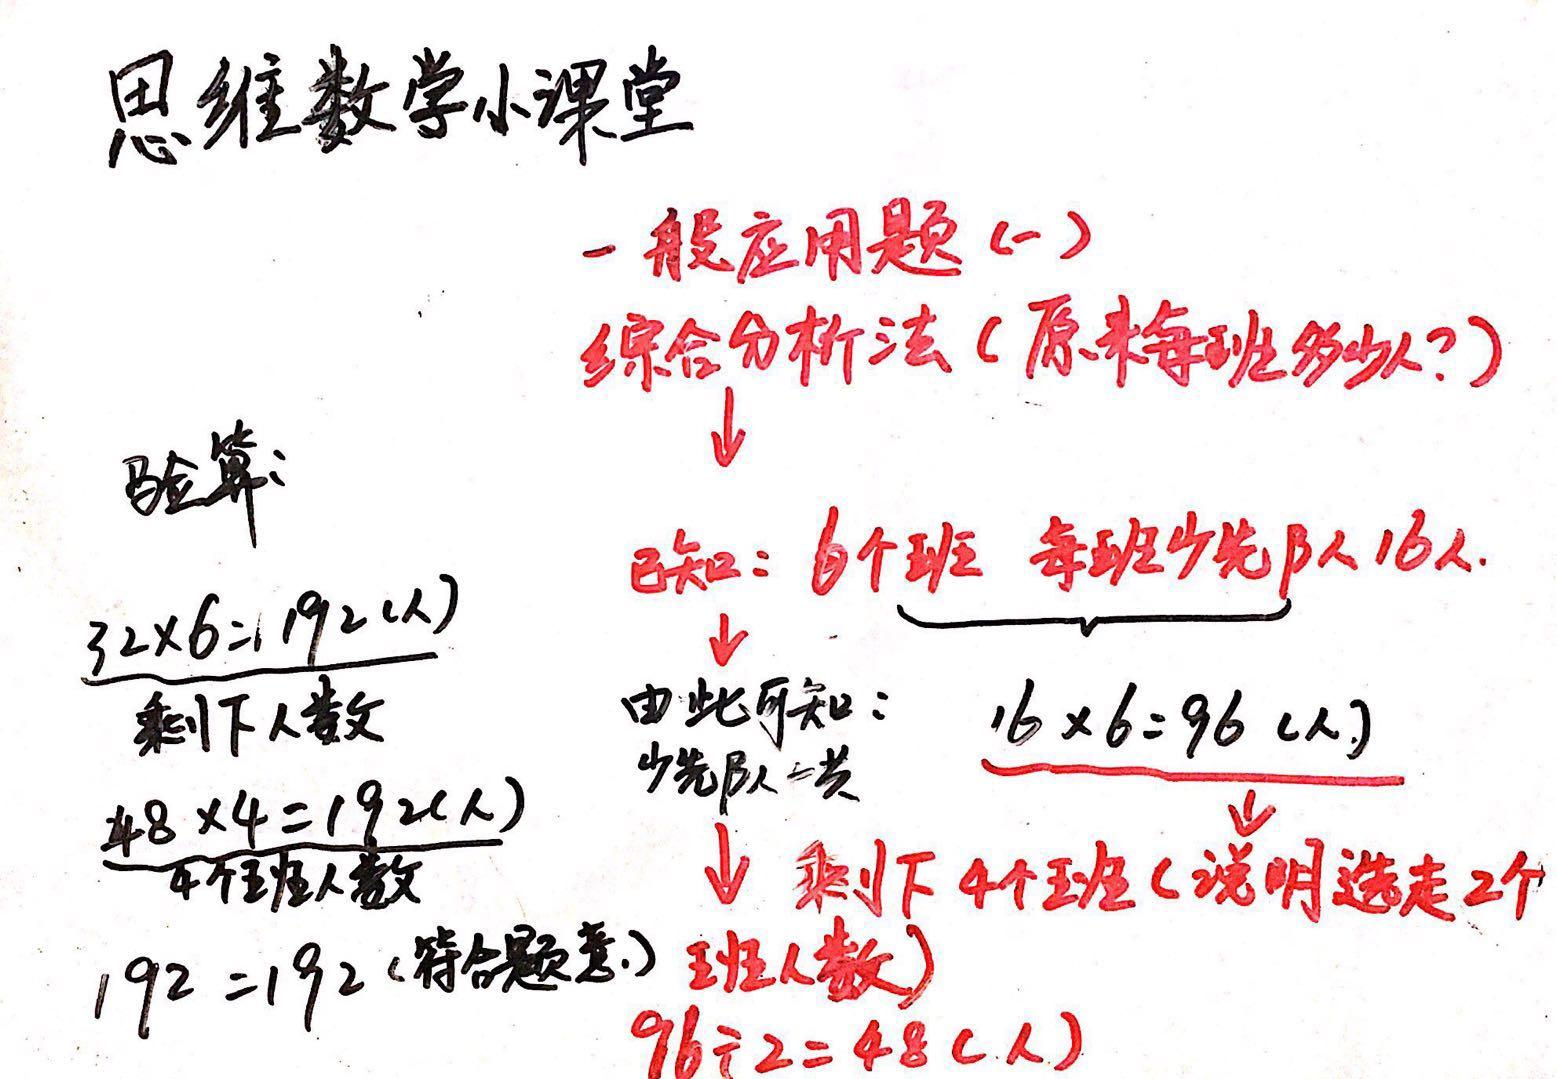 思维数学小课堂
一般应用题(一)
综合分析法(原来每班多少人?)
已知: 6个班 每班少先队16人.
由此可知:
少先队一共
16×6=96(人)
剩下4个班(说明选走2个
班人数)
96÷2=48(人)
验算:
32×6=192(人)
剩下人数
48×4=192(人)
4个班人数
192=192(符合题意.)